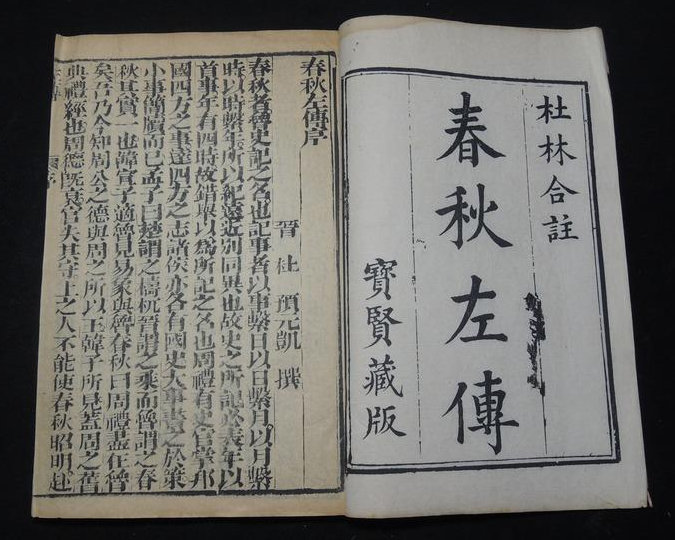 杜林合註
春秋左傳
寶賢藏版
春秋左傳序
晉 杜 預元凱 撰
春秋者魯史記之名也記事者以事繫日以日繫月以月繫
時以時繫年所以紀遠近別同異也故史之所記必表年以
首事年有四時故錯舉以爲所記之名也周禮有史官掌邦
國四方之事達四方之志諸侯亦各有國史大事書之於策
小事簡牘而已孟子曰楚謂之檮杌晉謂之乘而魯謂之春
秋其實一也韓宣子適魯見易象與魯春秋曰周禮盡在魯
矣吾乃今知周公之德與周之所以王韓子所見蓋周之舊
典禮經也周德既衰官失其守上之人不能使春秋昭明赴